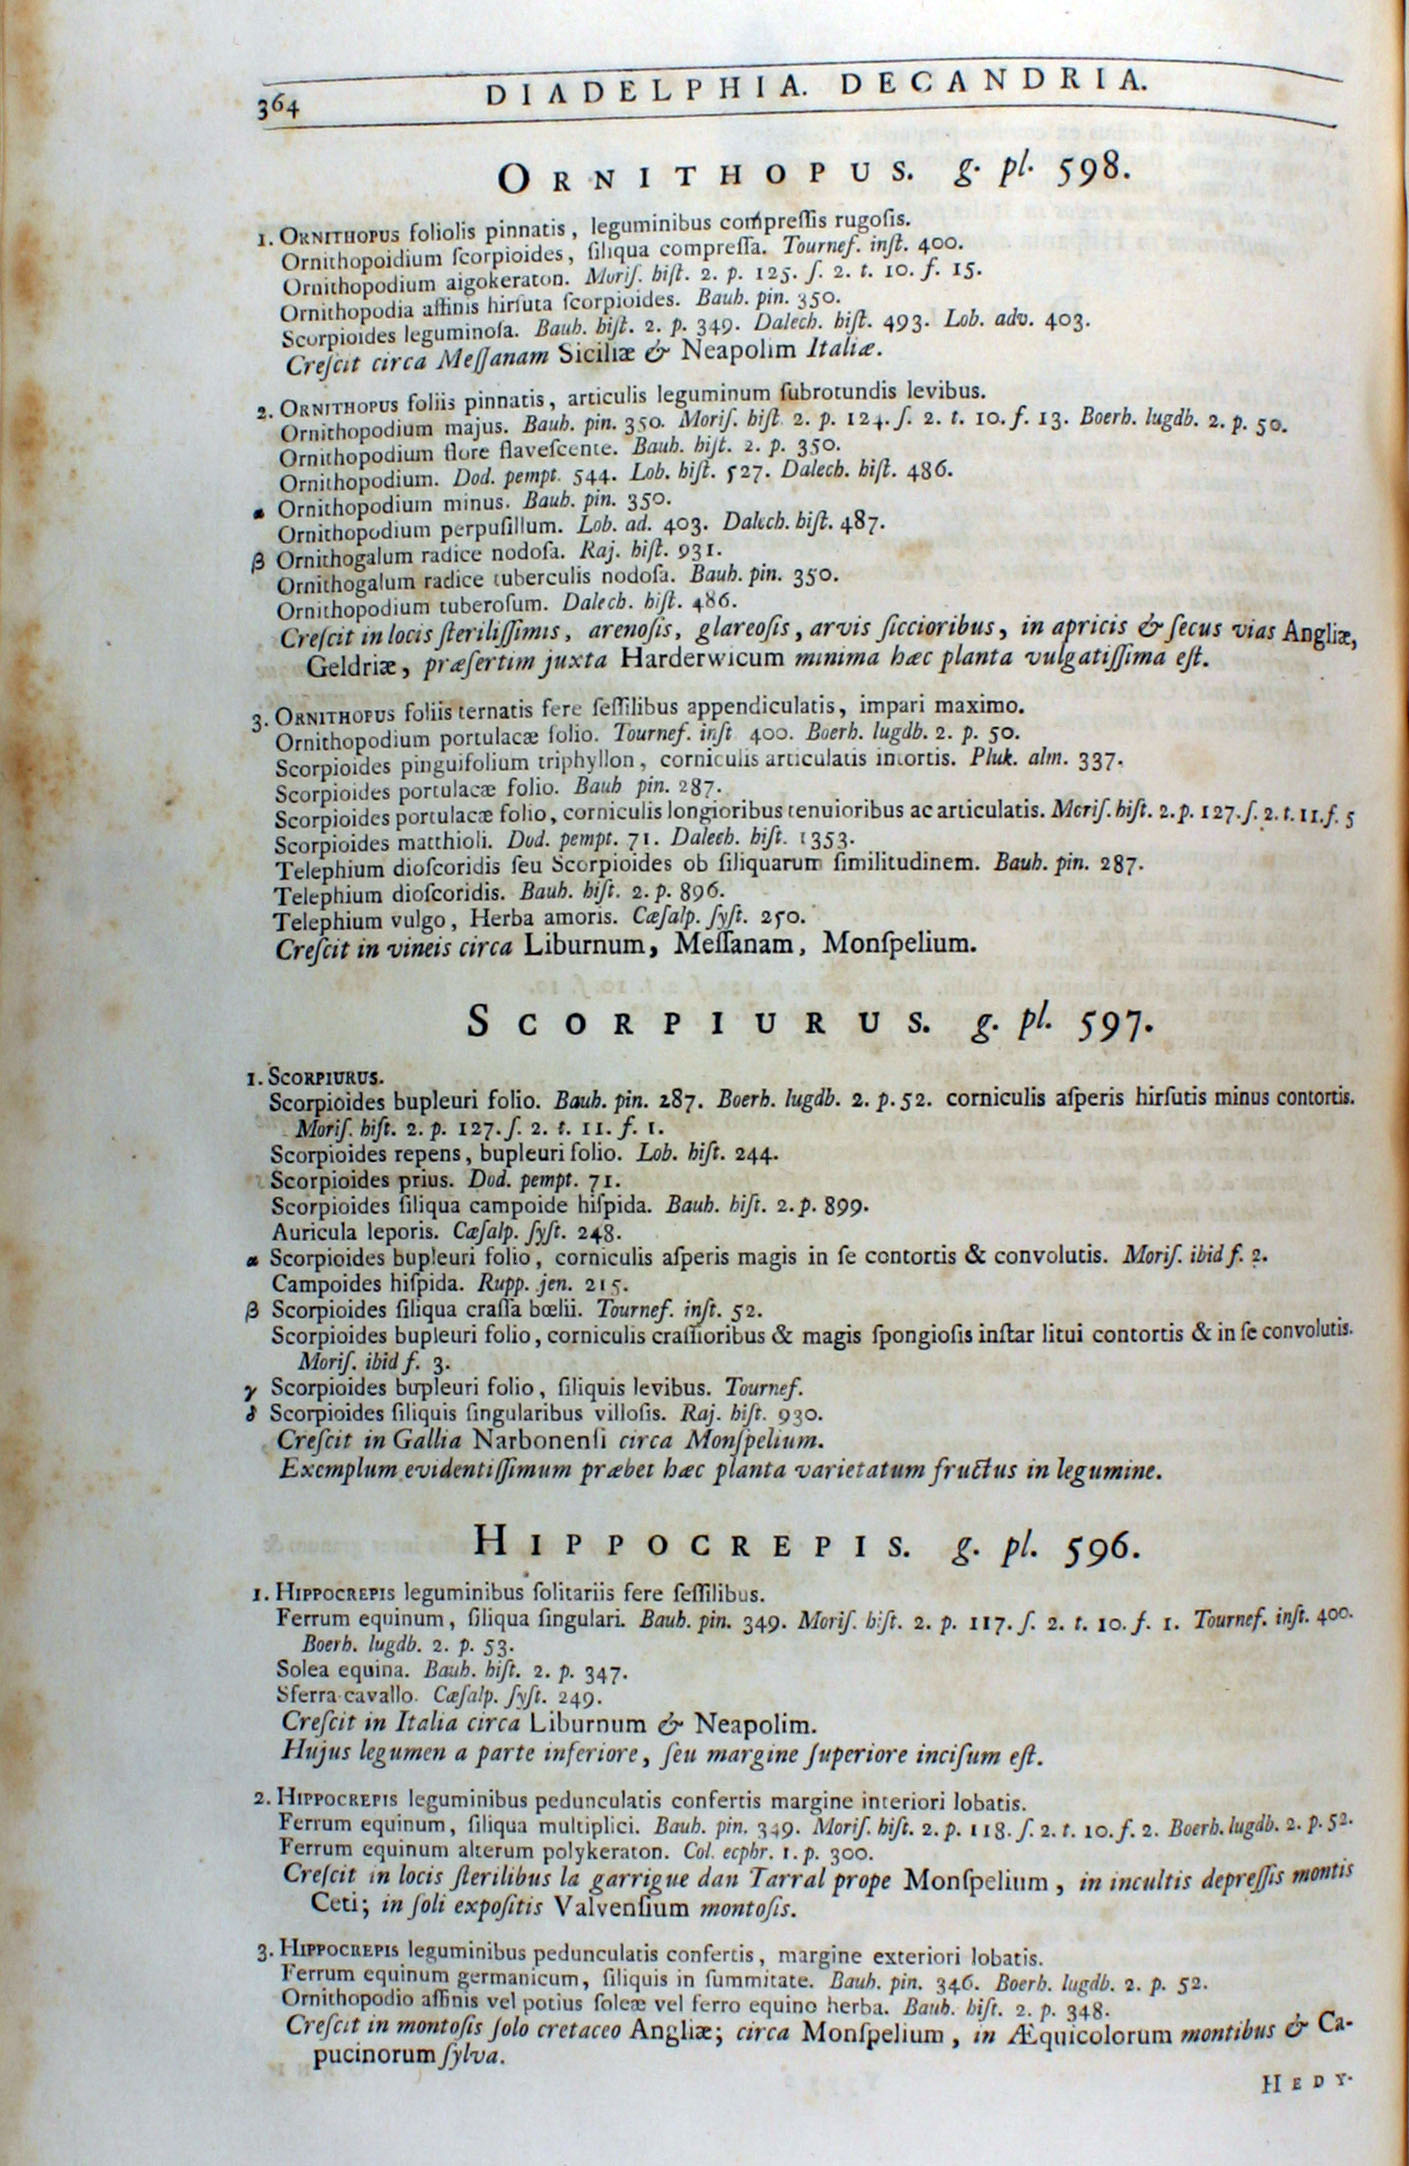 364 DIADELPHIA. DECANDRIA.
ORNITHOPUS. g. pl. 598.
1. ORNITHOPUS foliolis pinnatis, leguminibus compreſſis rugoſis.
Ornithopoidium ſcorpioides, ſiliqua compreſſa. Tournef. inſt. 400.
Ornithopodium aigokeraton. Moriſ. hiſt. 2. p. 125. ſ. 2. t. 10. f. 15.
Ornithopodia affinis hirſuta ſcorpioides. Bauh. pin. 350.
Scorpioides leguminoſa. Bauh. hiſt. 2. p. 349. Dalech. hiſt. 493. Lob. adv. 403.
Creſcit circa Meſſanam Siciliæ & Neapolim Italiæ.
2. ORNITHOPUS foliis pinnatis, articulis leguminum ſubrotundis levibus.
Ornithopodium majus. Bauh. pin. 350. Moriſ. hiſt. 2. p. 124. ſ. 2. t. 10. f. 13. Boerh. lugdb. 2. p. 50.
Ornithopodium flore flaveſcente. Bauh. hiſt. 2. p. 350.
Ornithopodium. Dod. pempt. 544. Lob. hiſt. 527. Dalech. hiſt. 486.
α Ornithopodium minus. Bauh. pin. 350.
Ornithopodium perpuſillum. Lob. ad. 403. Dalech. hiſt. 487.
β Ornithogalum radice nodoſa. Raj. hiſt. 931.
Ornithogalum radice tuberculis nodoſa. Bauh. pin. 350.
Ornithopodium tuberoſum. Dalech. hiſt. 486.
Creſcit in locis ſteriliſſimis, arenoſis, glareoſis, arvis ſiccioribus, in apricis & ſecus vias Angliæ,
Geldriæ, præſertim juxta Harderwicum minima hæc planta vulgatiſſima eſt.
3. ORNITHOPUS foliis ternatis fere ſeſſilibus appendiculatis, impari maximo.
Ornithopodium portulacæ folio. Tournef. inſt 400. Boerh. lugdb. 2. p. 50.
Scorpioides pinguifolium triphyllon, corniculis articulatis intortis. Pluk. alm. 337.
Scorpioides portulacæ folio. Bauh pin. 287.
Scorpioides portulacæ folio, corniculis longioribus tenuioribus ac articulatis. Moriſ. hiſt. 2. p. 127. ſ. 2. t. 11. f. 5
Scorpioides matthioli. Dod. pempt. 71. Dalech. hiſt. 1353.
Telephium dioſcoridis ſeu Scorpioides ob ſiliquarum ſimilitudinem. Bauh. pin. 287.
Telephium dioſcoridis. Bauh. hiſt. 2. p. 896.
Telephium vulgo, Herba amoris. Cæſalp. ſyſt. 250.
Creſcit in vineis circa Liburnum, Meſſanam, Monſpelium.
SCORPIURUS. g. pl. 597.
1. SCORPIURUS.
Scorpioides bupleuri folio. Bauh. pin. 287. Boerh. lugdb. 2. p. 52. corniculis aſperis hirſutis minus contortis.
Moriſ. hiſt. 2. p. 127. ſ. 2. t. 11. f. 1.
Scorpioides repens, bupleuri folio. Lob. hiſt. 244.
Scorpioides prius. Dod. pempt. 71.
Scorpioides ſiliqua campoide hiſpida. Bauh. hiſt. 2. p. 899.
Auricula leporis. Cæſalp. ſyſt. 248.
α Scorpioides bupleuri folio, corniculis aſperis magis in ſe contortis & convolutis. Moriſ. ibid f. 2.
Campoides hiſpida. Rupp. jen. 215.
β Scorpioides ſiliqua craſſa bœlii. Tournef. inſt. 52.
Scorpioides bupleuri folio, corniculis craſſioribus & magis ſpongioſis inſtar litui contortis & in ſe convolutis.
Moriſ. ibid f. 3.
γ Scorpioides bupleuri folio, ſiliquis levibus. Tournef.
δ Scorpioides ſiliquis ſingularibus villoſis. Raj. hiſt. 930.
Creſcit in Gallia Narbonenſi circa Monſpelium.
Exemplum evidentiſſimum præbet hæc planta varietatum fructus in legumine.
HIPPOCREPIS. g. pl. 596.
1. HIPPOCREPIS leguminibus ſolitariis fere ſeſſilibus.
Ferrum equinum, ſiliqua ſingulari. Bauh. pin. 349. Moriſ. hiſt. 2. p. 117. ſ. 2. t. 10. f. 1. Tournef. inſt. 400.
Boerh. lugdb. 2. p. 53.
Solea equina. Bauh. hiſt. 2. p. 347.
Sferra cavallo. Cæſalp. ſyſt. 249.
Creſcit in Italia circa Liburnum & Neapolim.
Hujus legumen a parte inferiore, ſeu margine ſuperiore inciſum eſt.
2. HIPPOCREPIS leguminibus pedunculatis confertis margine interiori lobatis.
Ferrum equinum, ſiliqua multiplici. Bauh. pin. 349. Moriſ. hiſt. 2. p. 118. ſ. 2. t. 10. f. 2. Boerh. lugdb. 2. p. 52.
Ferrum equinum alterum polykeraton. Col. ecphr. 1. p. 300.
Creſcit in locis ſterilibus la garrigue dan Tarral prope Monſpelium, in incultis depreſſis montis
Ceti; in ſoli expoſitis Valvenſium montoſis.
3. HIPPOCREPIS leguminibus pedunculatis confertis, margine exteriori lobatis.
Ferrum equinum germanicum, ſiliquis in ſummitate. Bauh. pin. 346. Boerh. lugdb. 2. p. 52.
Ornithopodio affinis vel potius ſoleæ vel ferro equino herba. Bauh. hiſt. 2. p. 348.
Creſcit in montoſis ſolo cretaceo Angliæ; circa Monſpelium, in Æquicolorum montibus & Ca-
pucinorum ſylva.
HEDY-